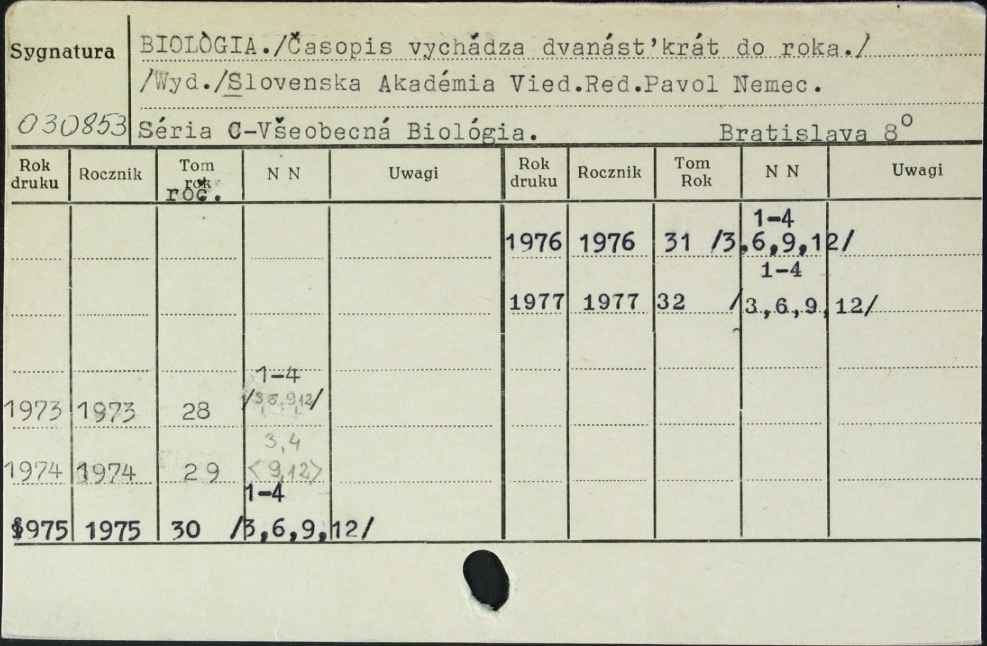 Sygnatura
BIOLÒGIA./Časopis vychádza dvanást'krát do roka./
/Wyd./Slovenska Akadémia Vied.Red.Pavol Nemec.
030853 Séria C-Všeobecná Biológia. Bratislava 8°
Rok druku Rocznik Tom rok roč. N N Uwagi Rok druku Rocznik Tom Rok N N Uwagi
1-4
1976 1976 31 /3,6,9,12/
1-4
1977 1977 32 /3,6,9,12/
1-4
1973 1973 28 /3,6,9,12/
3,4
1974 1974 29 <9,12>
1-4
§975 1975 30 /3,6,9,12/